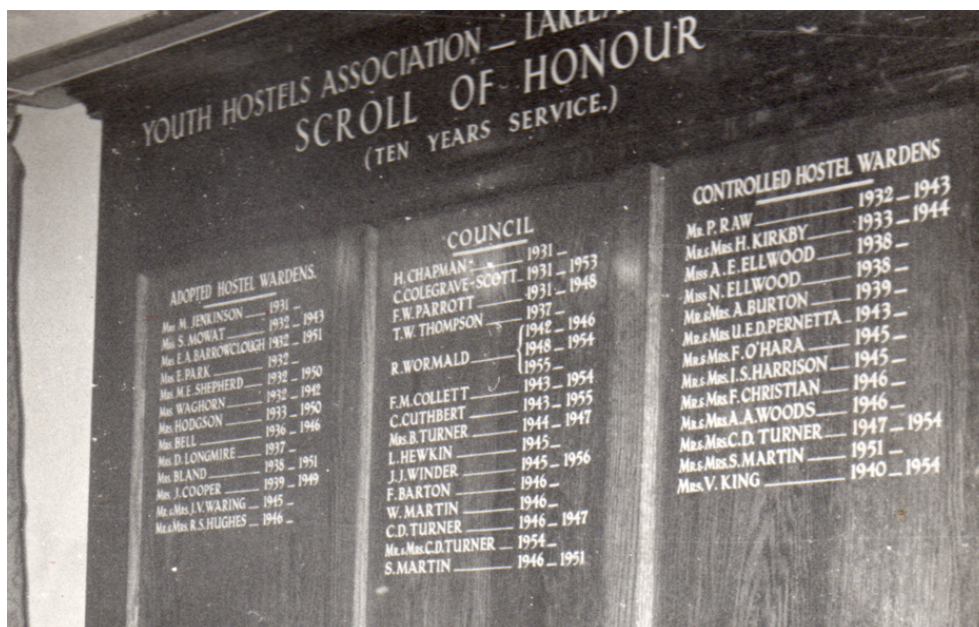 YOUTH HOSTELS ASSOCIATION — LAKELA
SCROLL OF HONOUR
(TEN YEARS SERVICE.)
ADOPTED HOSTEL WARDENS.
Miss M. JENKINSON — 1931 –
Miss S. MOWAT — 1932 – 1943
Mrs. E.A. BARROWCLOUGH 1932 – 1951
Mrs. E. PARK — 1932 –
Mrs. M.E. SHEPHERD — 1932 – 1950
Mrs. WAGHORN — 1932 – 1942
Mrs. HODGSON — 1933 – 1950
Mrs. BELL — 1936 – 1946
Mrs. D. LONGMIRE — 1937 –
Mrs. BLAND — 1938 – 1951
Mrs. J. COOPER — 1939 – 1949
Mr. & Mrs. J.V. WARING — 1945 –
Mr. & Mrs. R.S. HUGHES — 1946 –
COUNCIL
H. CHAPMAN — 1931 –
C. COLEGRAVE-SCOTT. 1931 – 1953
F.W. PARROTT — 1931 – 1948
T.W. THOMPSON — 1937 –
1942 – 1946
R. WORMALD — 1948 – 1954
1955 –
F.M. COLLETT — 1943 – 1954
C. CUTHBERT — 1943 – 1955
Mrs. B. TURNER — 1944 – 1947
L. HEWKIN — 1945 –
J.J. WINDER — 1945 – 1956
F. BARTON — 1946 –
W. MARTIN — 1946 –
C.D. TURNER — 1946 – 1947
Mr. & Mrs. C.D. TURNER — 1954 –
S. MARTIN — 1946 – 1951
CONTROLLED HOSTEL WARDENS
Mr. P. RAW — 1932 – 1943
Mr. & Mrs. H. KIRKBY — 1933 – 1944
Miss A.E. ELLWOOD — 1938 –
Miss N. ELLWOOD — 1938 –
Mr. & Mrs. A. BURTON — 1939 –
Mr. & Mrs. U.E.D. PERNETTA — 1943 –
Mr. & Mrs. F. O'HARA — 1945 –
Mr. & Mrs. I.S. HARRISON — 1945 –
Mr. & Mrs. F. CHRISTIAN — 1946 –
Mr. & Mrs. A.A. WOODS — 1946 –
Mr. & Mrs. C.D. TURNER — 1947 – 1954
Mr. & Mrs. S. MARTIN — 1951 –
Mrs. V. KING — 1940 – 1954